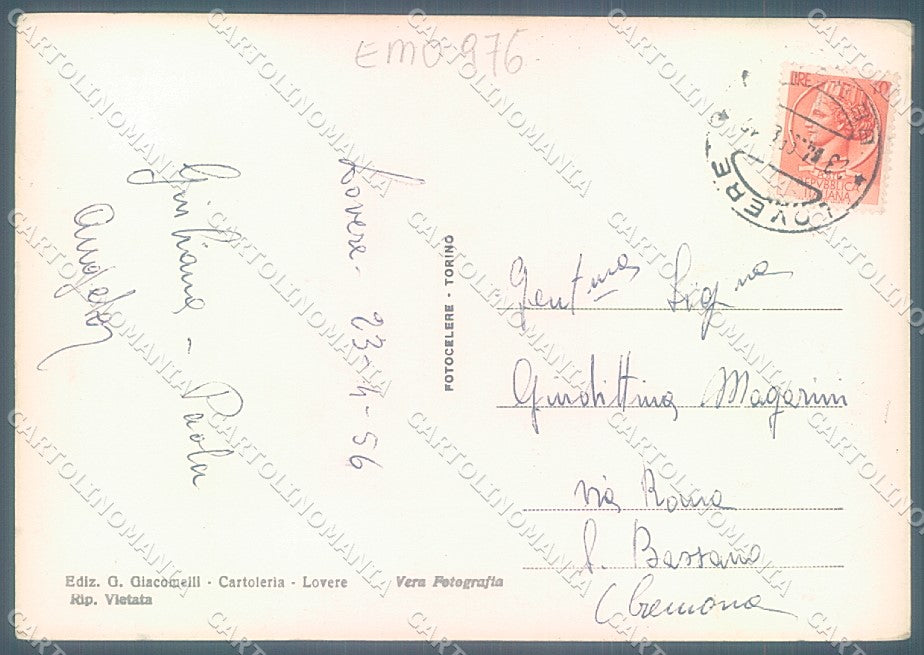 EMO 976
Lovere - 23-4-56
Giuliana - Paola
Angela
FOTOCELERE - TORINO
LIRE 10
REPUBBLICA
ITALIANA
LOVERE
Gent.ma Sig.na
Giudittina Magarini
Via Roma
S. Bassano
Cremona
Ediz. G. Giacomelli - Cartoleria - Lovere
Vera Fotografia
Rip. Vietata
CARTOLINOMANIA